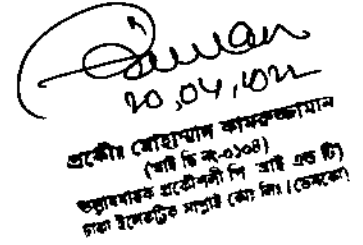 20,04,2022
প্রকৌঃ মোহাম্মাদ কামরুজ্জামান
(আই ডি নং-০১০৪)
তত্ত্বাবধায়ক প্রকৌশলী পি আই এন্ড টি)
ঢাকা ইলেকট্রিক সাপ্লাই কোঃ লিঃ। (ডেসকো)